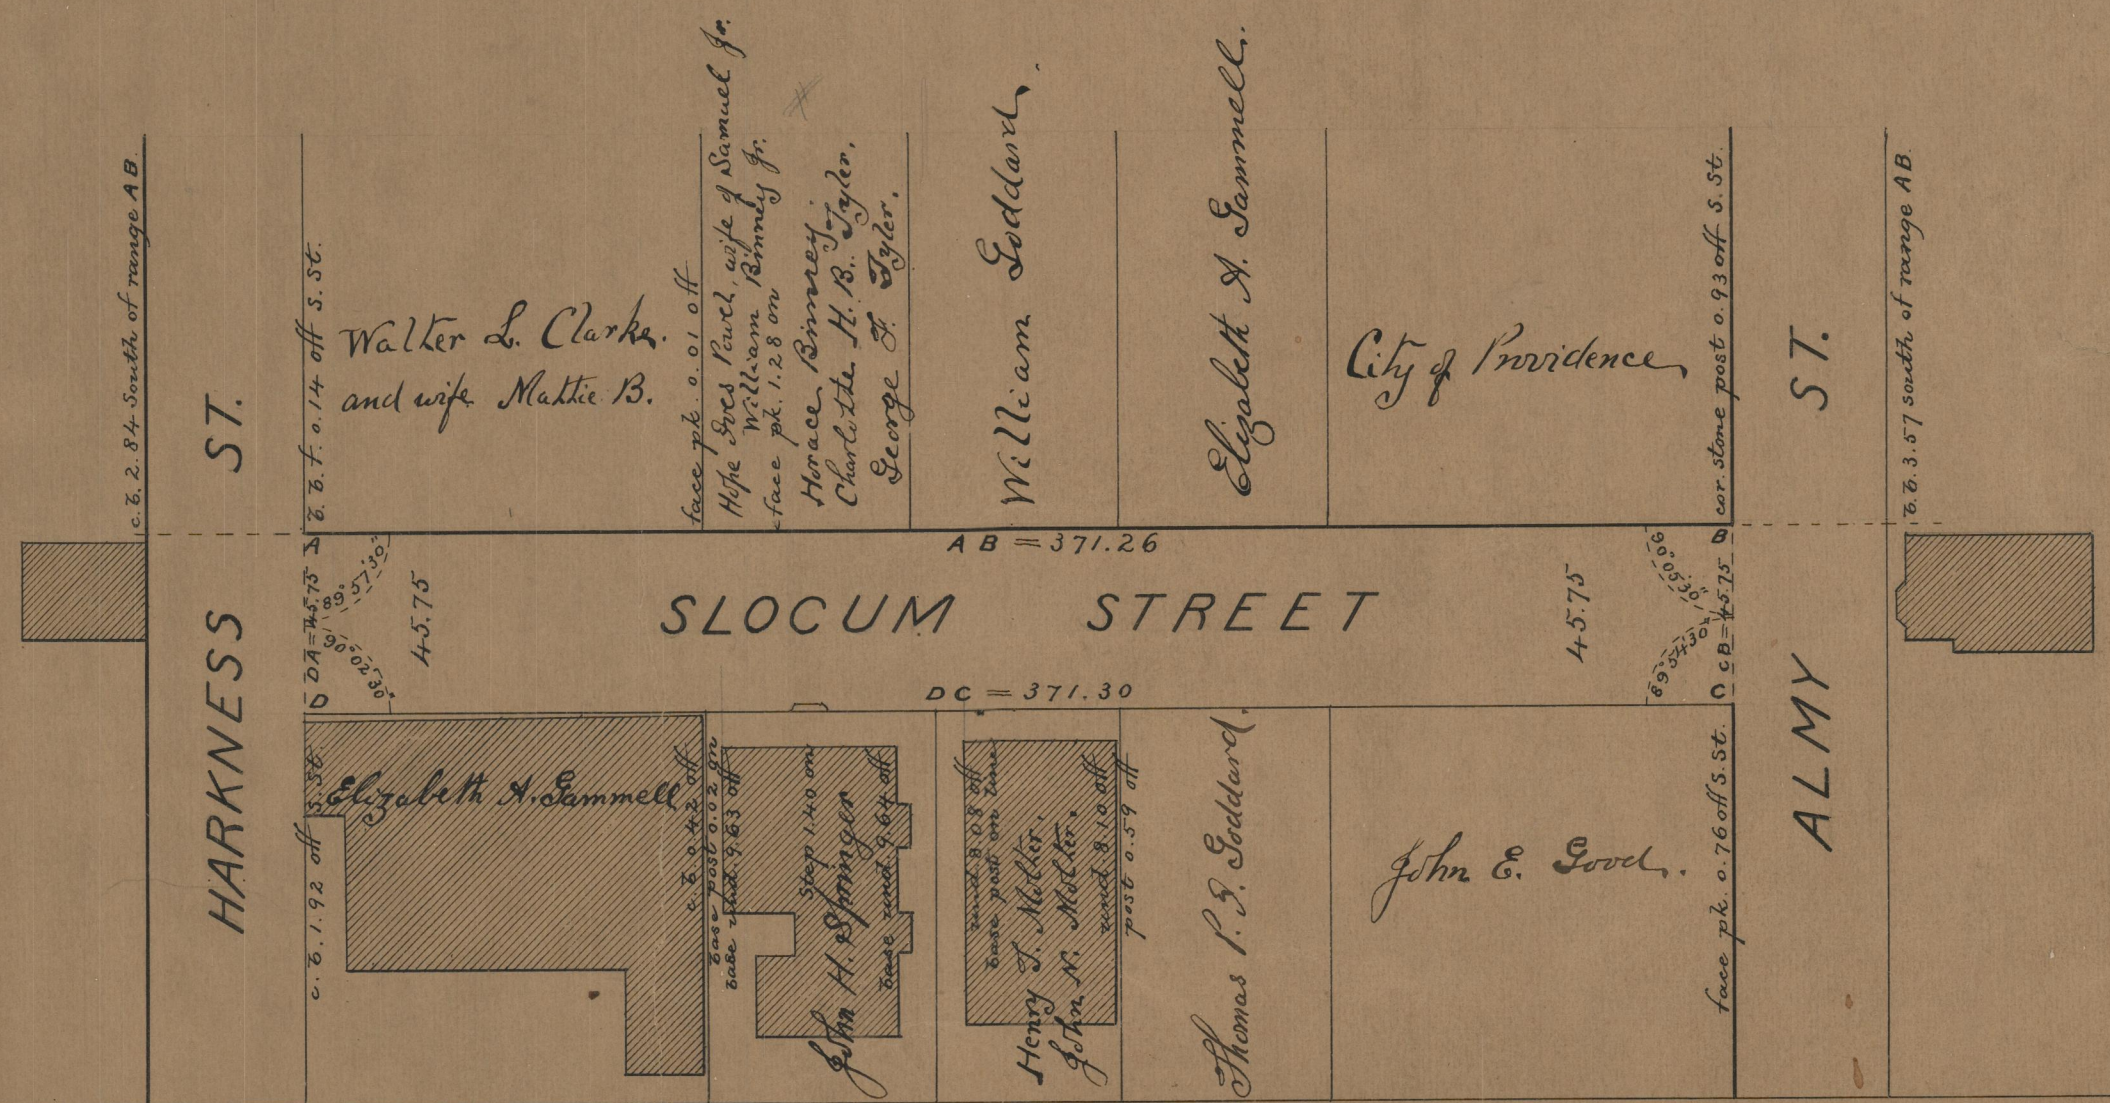 c. b. 2.84 South of range AB.
HARKNESS ST.
b. b. f. 0.14 off S. St.
Walter L. Clarke.
and wife Mattie B.
face pk. 0.01 off
Hope Ives Powel, wife of Samuel Jr.
William Binney Jr.
face pk. 1.28 on
Horace Binney
Charlotte H. B. Tyler.
George F. Tyler.
William Goddard.
Elizabeth A. Gammell.
City of Providence
cor. stone post 0.93 off S. St.
ALMY ST.
b. b. 3.57 south of range AB.
A
AB = 371.26
B
DA = 45.75
89° 57' 30"
90° 02' 30"
45.75
SLOCUM STREET
45.75
89° 54' 30"
CB = 45.75
D
DC = 371.30
C
c. b. 1.92 off S. St.
Elizabeth A. Gammell
c. b. 0.42 off
base post 0.02 on
base und. 9.63 off
Step 1.40 on
John H. Springer
base und. 9.64 off
und. 8.08 off
base post on line
Henry T. Molter.
John N. Molter.
und. 8.10 off
post 0.59 off
Thomas P. I. Goddard.
John E. Good.
face pk. 0.76 off S. St.